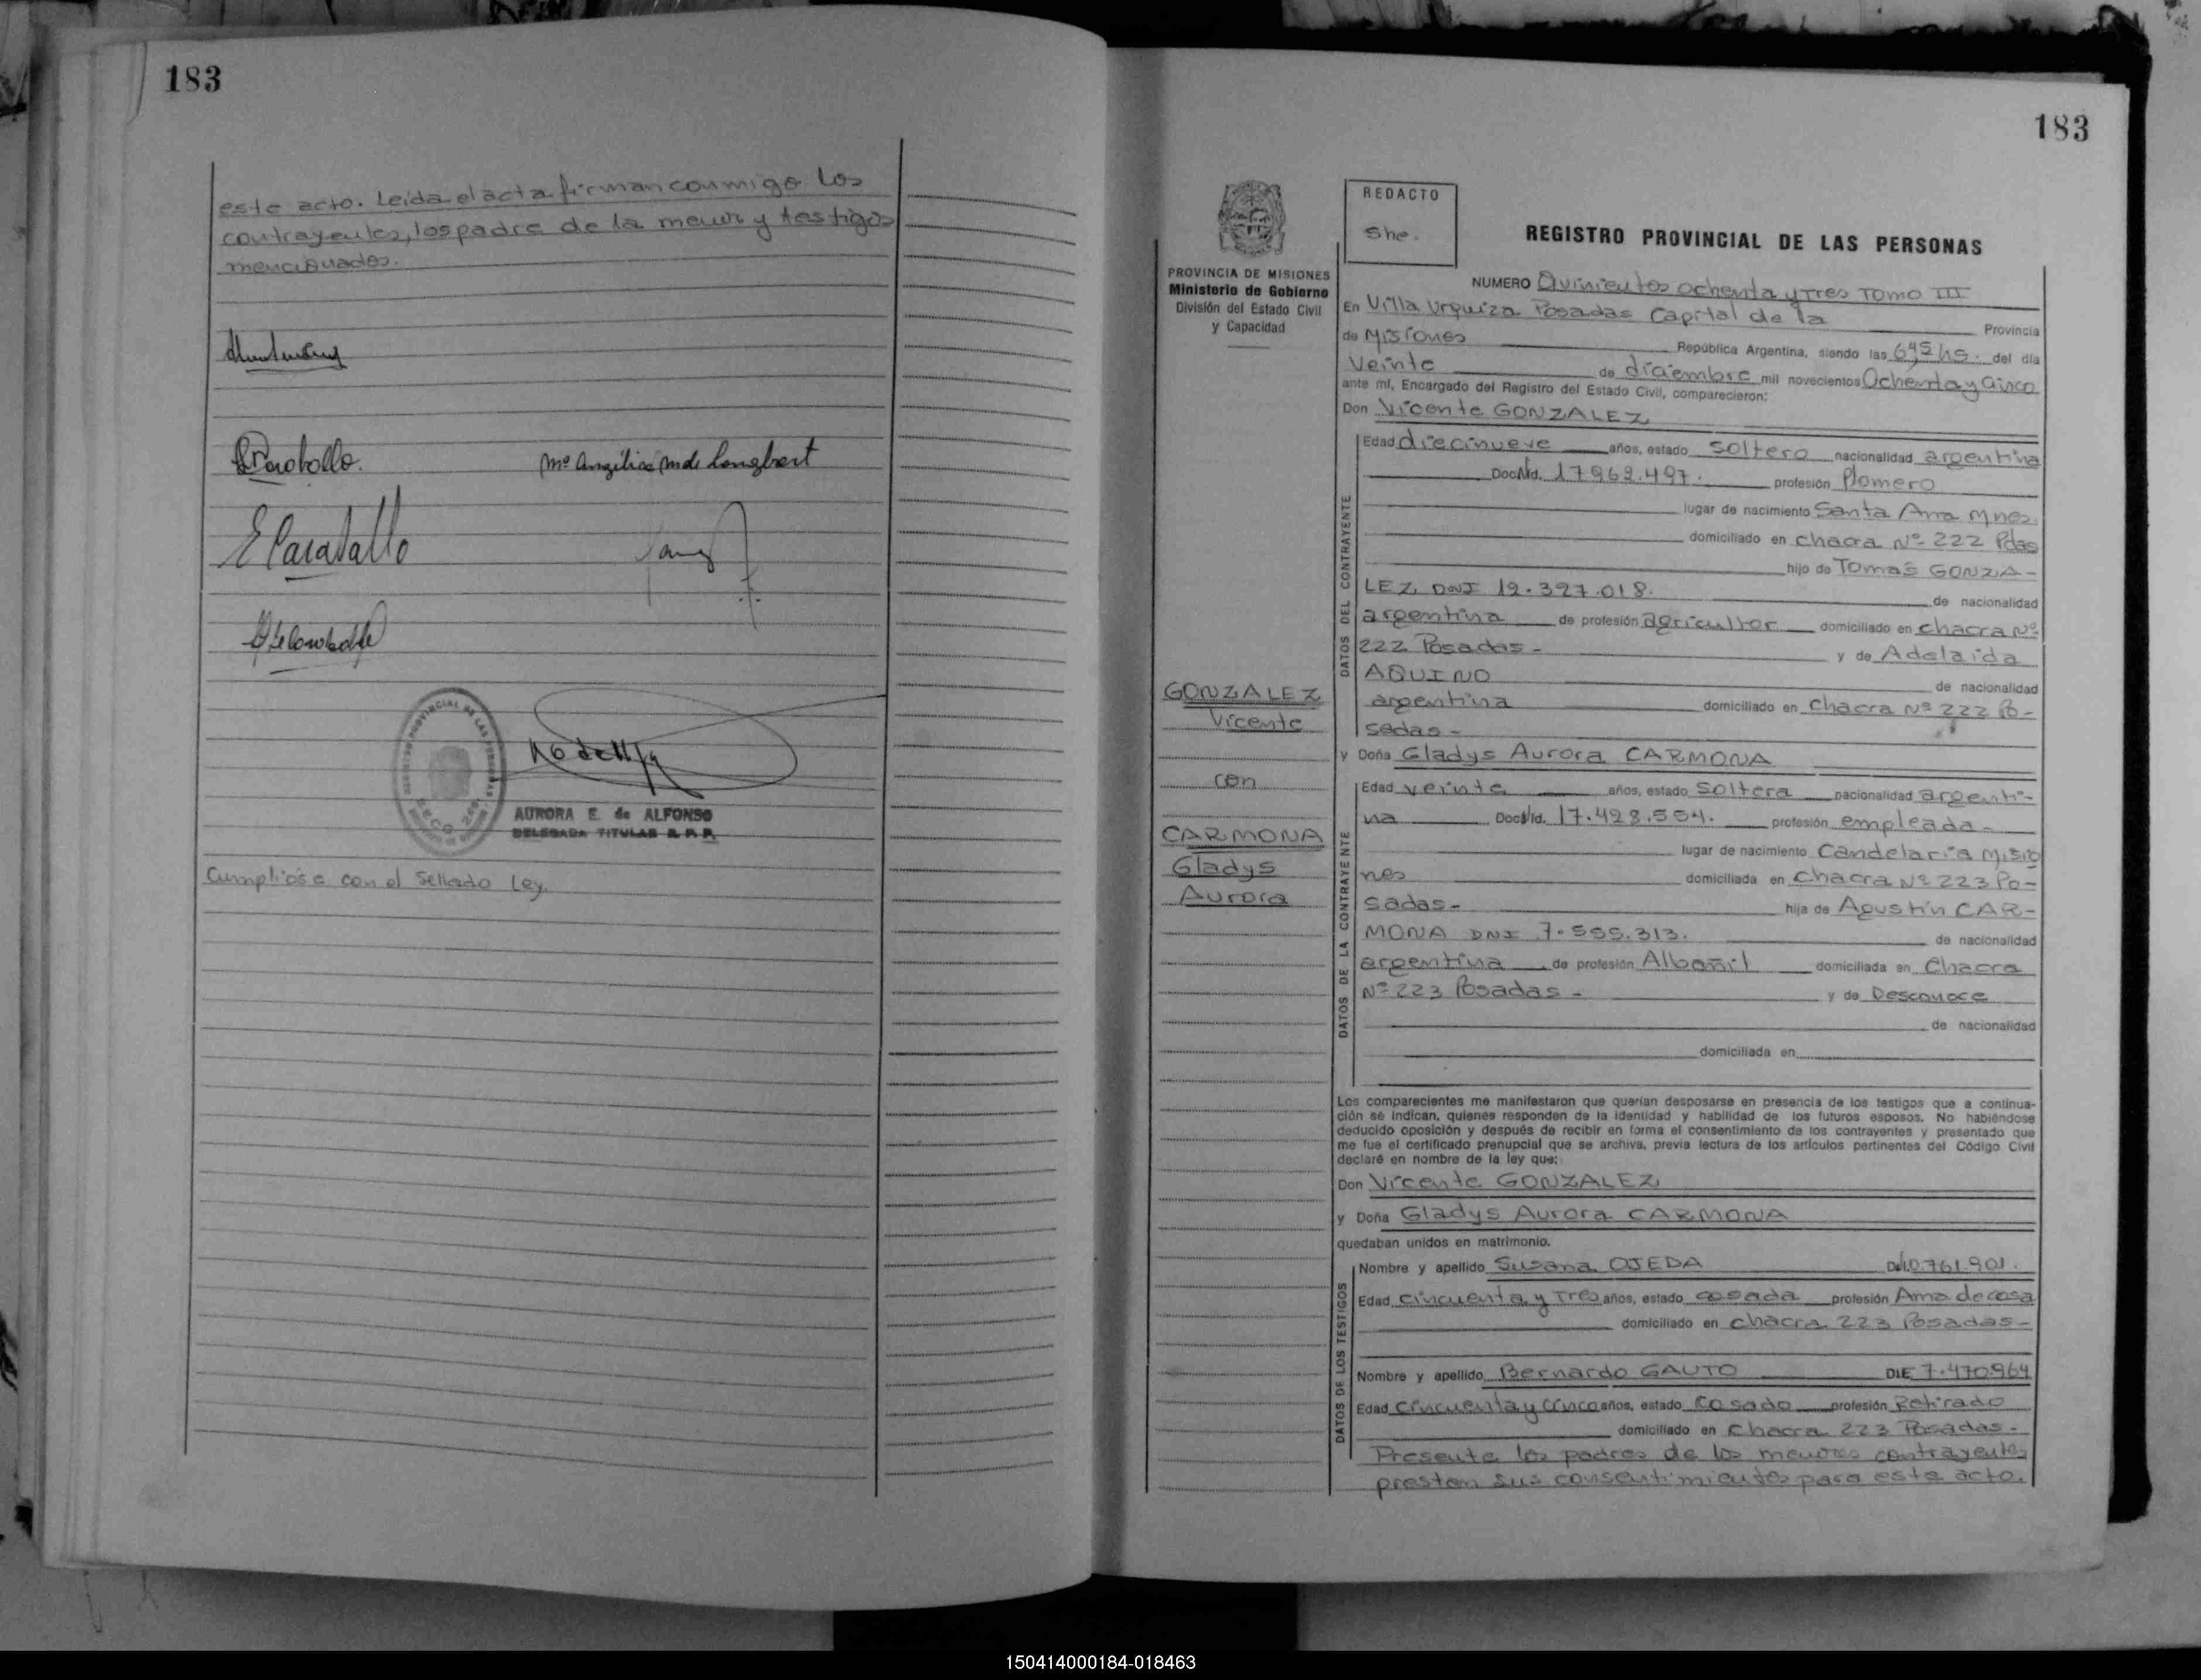 183
este acto. Leida el acta firman conmigo los
contrayentes, los padre de la menor y testigos
mencionados.
Mª Angélica M de
E Caraballo
REGISTRO PROVINCIAL DE LAS PERSONAS
AURORA E. de ALFONSO
DELEGADA TITULAR R. P. P.
Cumplióse con el Sellado Ley.
183
PROVINCIA DE MISIONES
Ministerio de Gobierno
División del Estado Civil
y Capacidad
REDACTO
She.
REGISTRO PROVINCIAL DE LAS PERSONAS
NUMERO Quinientos ochenta y Tres Tomo III
En Villa Urquiza Posadas Capital de la Provincia
de Misiones República Argentina, siendo las 6,45 hs. del día
Veinte de diciembre mil novecientos Ochenta y Cinco
ante mí, Encargado del Registro del Estado Civil, comparecieron:
Don Vicente GONZALEZ
DATOS DEL CONTRAYENTE
Edad diecinueve años, estado Soltero nacionalidad argentina
Doc. Nd. 17.962.497. profesión Plomero
lugar de nacimiento Santa Ana Mnes.
domiciliado en Chacra Nº 222 Pdas
hijo de Tomás GONZA-
LEZ DNI 12.327.018. de nacionalidad
argentina de profesión agricultor domiciliado en Chacra Nº
222 Posadas - y de Adelaida
AQUINO de nacionalidad
argentina domiciliado en Chacra Nº 222 Po-
sadas -
GONZALEZ
Vicente
con
CARMONA
Gladys
Aurora
y Doña Gladys Aurora CARMONA
DATOS DE LA CONTRAYENTE
Edad veinte años, estado Soltera nacionalidad argenti-
na Doc. Id. 17.428.554. profesión empleada -
lugar de nacimiento Candelaria Misio
nes domiciliada en Chacra Nº 223 Po-
sadas - hija de Agustín CAR-
MONA DNI 7.555.313. de nacionalidad
argentina de profesión Albañil domiciliada en Chacra
Nº 223 Posadas - y de Desconoce
de nacionalidad
domiciliada en
Los comparecientes me manifestaron que querían desposarse en presencia de los testigos que a continua-
ción se indican, quienes responden de la identidad y habilidad de los futuros esposos. No habiéndose
deducido oposición y después de recibir en forma el consentimiento de los contrayentes y presentado que
me fue el certificado prenupcial que se archiva, previa lectura de los artículos pertinentes del Código Civil
declaré en nombre de la ley que:
Don Vicente GONZALEZ
y Doña Gladys Aurora CARMONA
quedaban unidos en matrimonio.
DATOS DE LOS TESTIGOS
Nombre y apellido Susana OJEDA 0.761.901.
Edad cincuenta y Tres años, estado casada profesión Ama de casa
domiciliado en Chacra 223 Posadas -
Nombre y apellido Bernardo GAUTO DIE 7.470.964
Edad cincuenta y cinco años, estado Casado profesión Retirado
domiciliado en Chacra 223 Posadas -
Presente los padres de los menores contrayentes
prestan sus consentimientos para este acto.
150414000184-018463